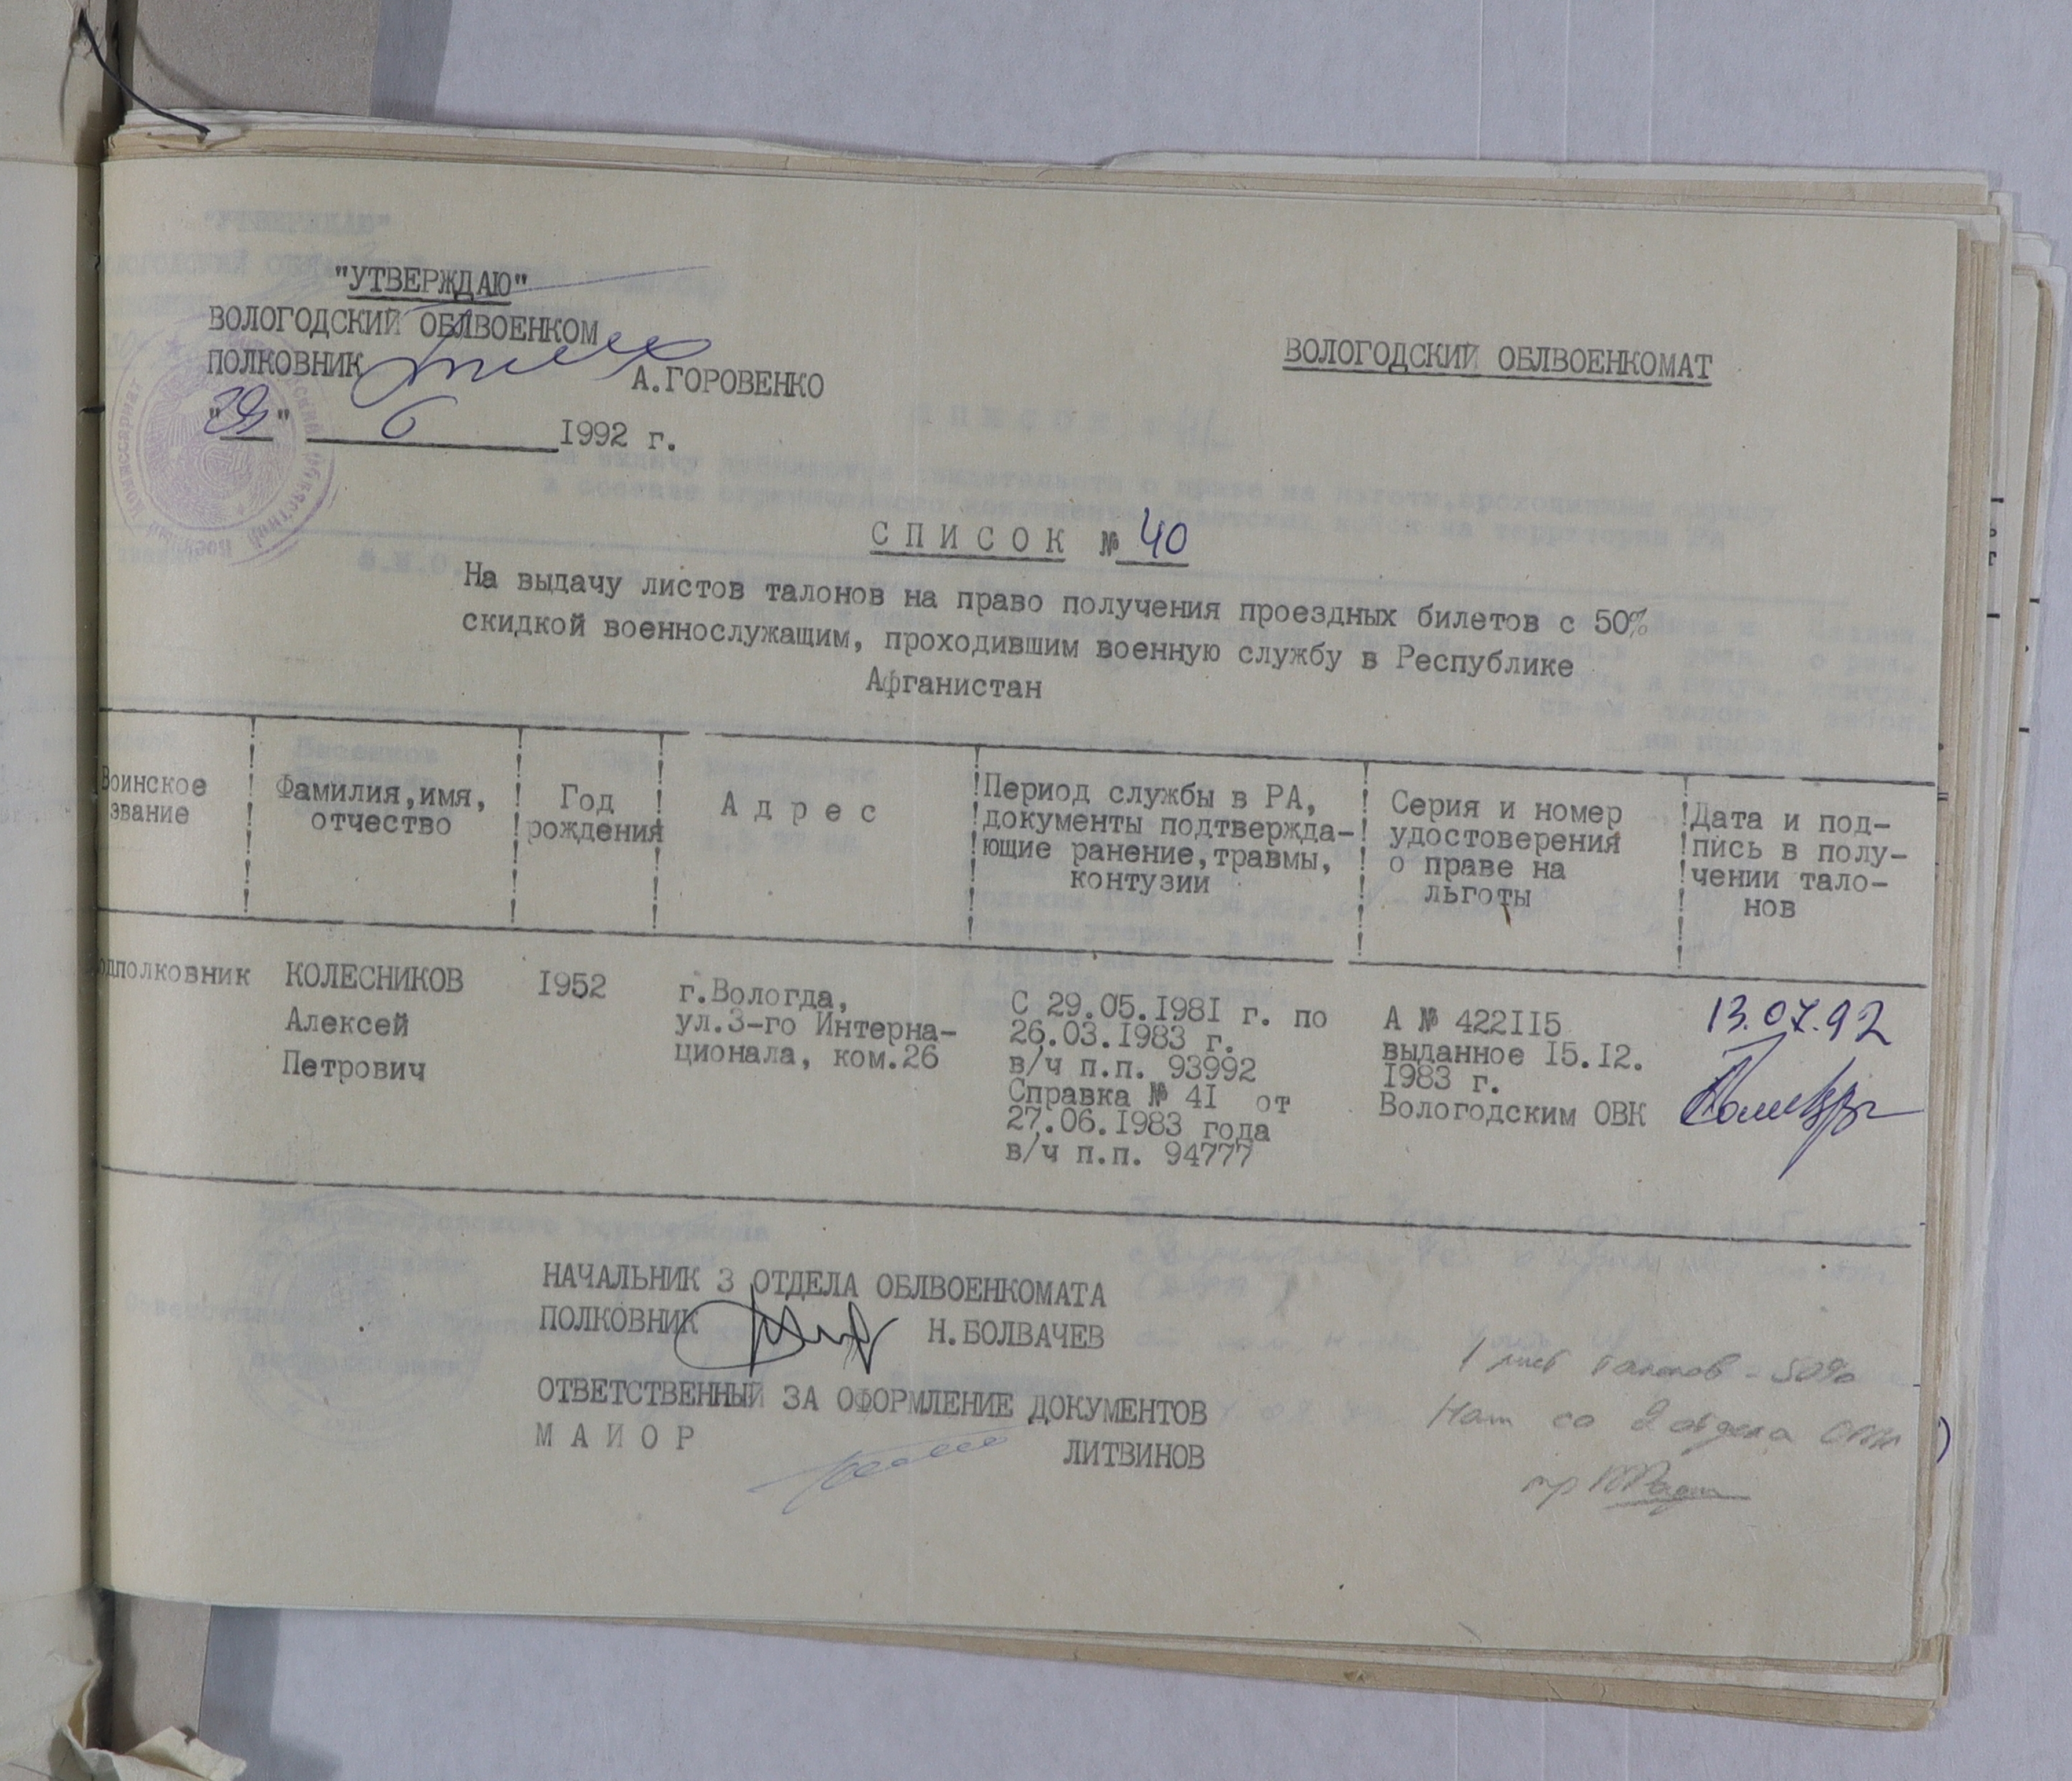 "УТВЕРЖДАЮ"
ВОЛОГОДСКИЙ ОБЛВОЕНКОМ
ПОЛКОВНИК А.ГОРОВЕНКО
"29" 6 1992 г.
ВОЛОГОДСКИЙ ОБЛВОЕНКОМАТ
С П И С О К № 40
На выдачу листов талонов на право получения проездных билетов с 50%
скидкой военнослужащим, проходившим военную службу в Республике
Афганистан
Воинское
звание
Фамилия,имя,
отчество
Год
рождения
А д р е с
Период службы в РА,
документы подтвержда-
ющие ранение,травмы,
контузии
Серия и номер
удостоверения
о праве на
льготы
Дата и под-
пись в полу-
чении тало-
нов
одполковник
КОЛЕСНИКОВ
Алексей
Петрович
1952
г.Вологда,
ул.3-го Интерна-
ционала, ком.26
С 29.05.1981 г. по
26.03.1983 г.
в/ч п.п. 93992
Справка № 41 от
27.06.1983 года
в/ч п.п. 94777
А № 422115
выданное 15.12.
1983 г.
Вологодским ОВК
13.07.92
НАЧАЛЬНИК 3 ОТДЕЛА ОБЛВОЕНКОМАТА
ПОЛКОВНИК Н.БОЛВАЧЕВ
ОТВЕТСТВЕННЫЙ ЗА ОФОРМЛЕНИЕ ДОКУМЕНТОВ
М А Й О Р ЛИТВИНОВ
1 лист талонов - 50%
2 отдела